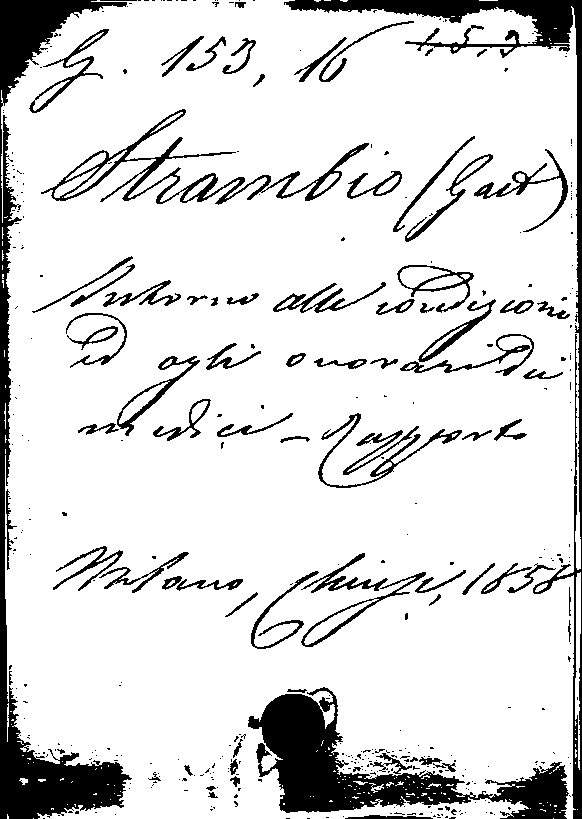 G. 153, 16 1,5,3
Strambio (Gaet)
Intorno alle condizioni
ed agli onorari dei
medici - Rapporto
Milano, Chiusi, 1858